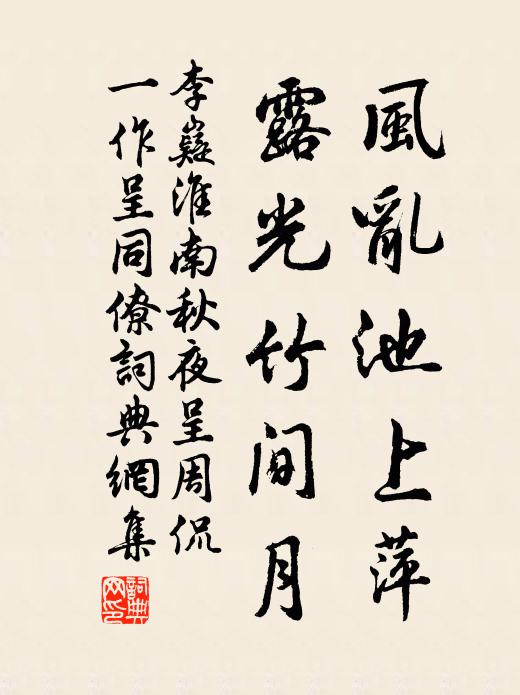 風亂池上萍
露光竹間月
李嶷淮南秋夜呈周侃
一作呈同僚詞典網集
詞典網印